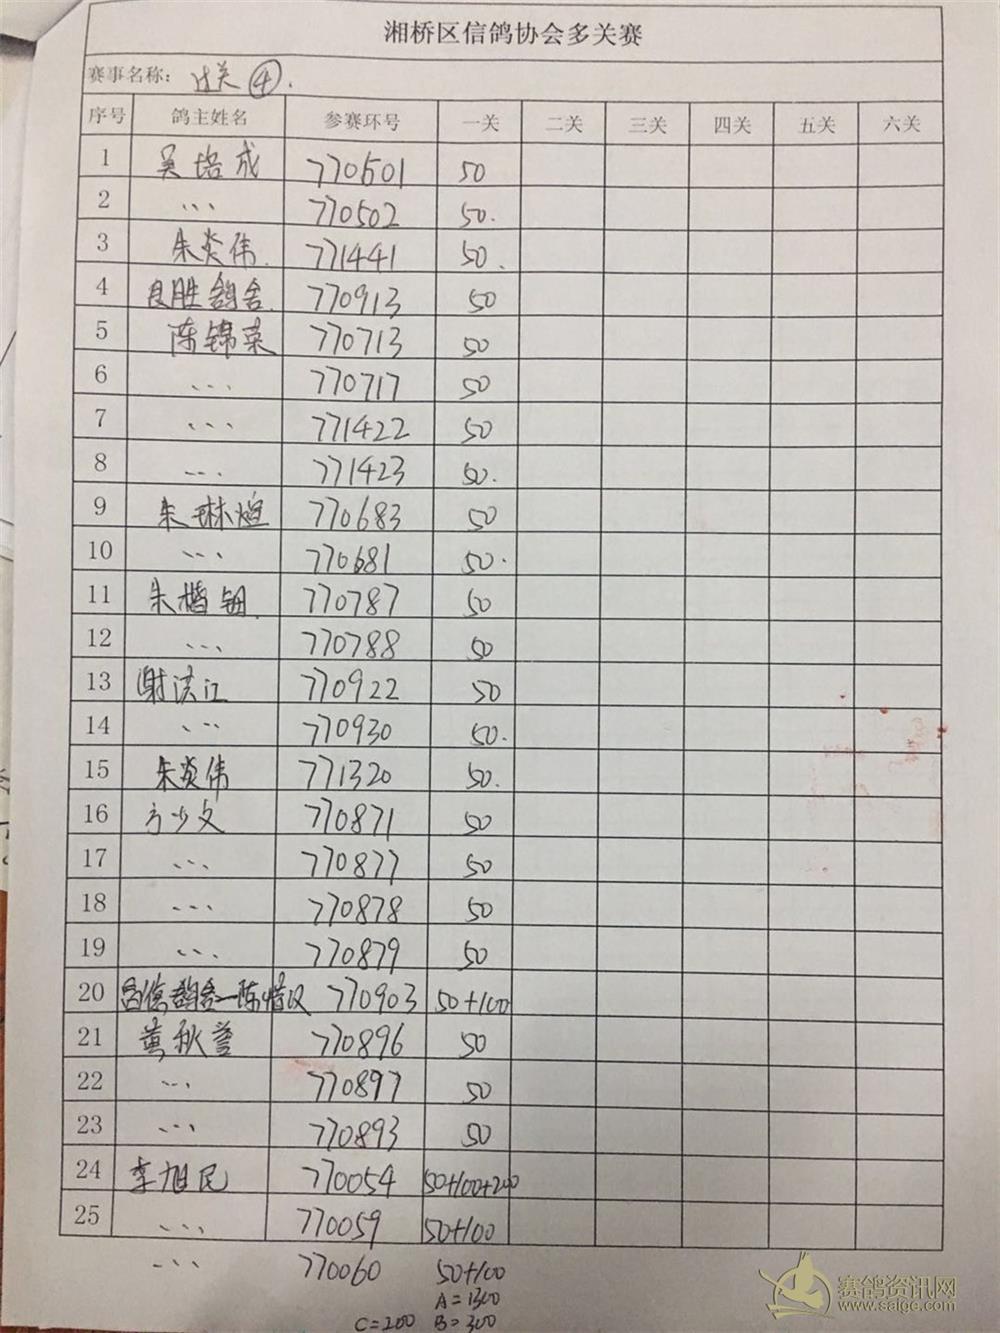 湘桥区信鸽协会多关赛
赛事名称: 过关④.
序号 鸽主姓名 参赛环号 一关 二关 三关 四关 五关 六关
1 吴培成 770501 50
2 、、、 770502 50.
3 朱炎伟. 771441 50.
4 良胜鸽舍. 770913 50
5 陈锦荣 770713 50
6 、、、 770717 50
7 、、、 771422 50
8 、、、 771423 50.
9 朱琳煊 770683 50
10 、、、 770681 50.
11 朱楷钿. 770787 50
12 、、、 770788 50
13 谢洪江 770922 50
14 、、、 770930 50.
15 朱炎伟 771320 50.
16 方少文 770871 50
17 、、、 770877 50
18 、、、 770878 50
19 、、、 770879 50
20 昌信鸽舍—陈惜汉 770903 50+100
21 黄秋 770896 50
22 、、、 770897 50
23 、、、 770893 50
24 李旭民 770054 50+100+200
25 、、、 770059 50+100
、、、 770060 50+100
A=1300
C=200 B=300
赛鸽资讯网
www.saige.com